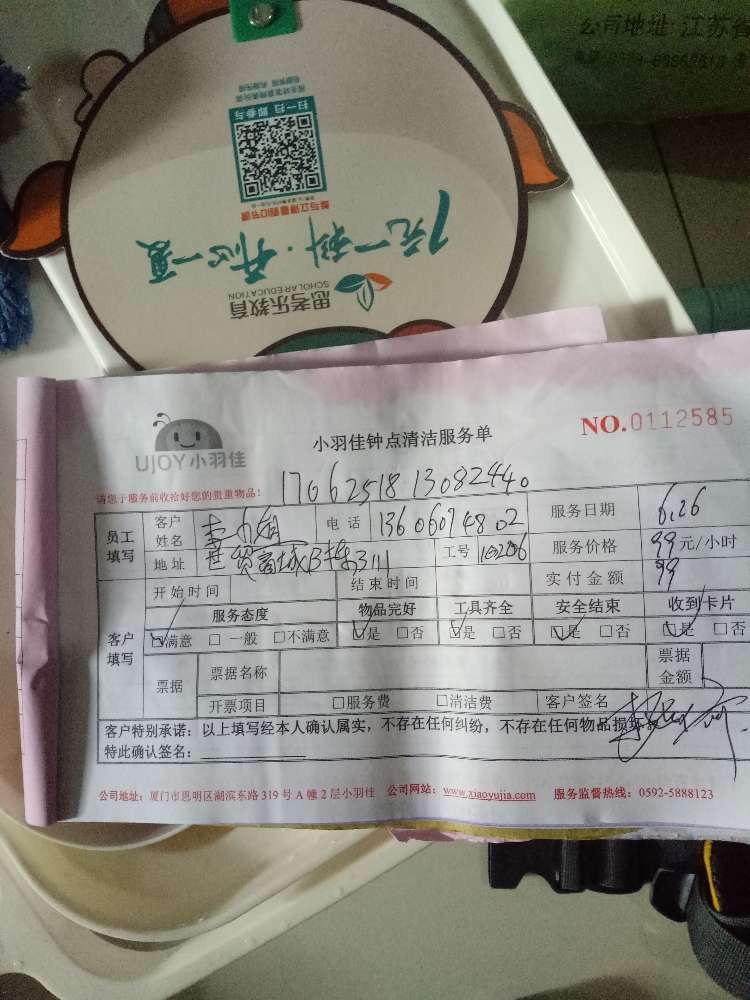 公司地址:江苏省
扫一扫 即参与
1元一科·开心一夏
思考乐教育
SCHOLAR EDUCATION
UJOY小羽佳
小羽佳钟点清洁服务单
NO.0112585
请您于服务前收拾好您的贵重物品!
1706251813082440
员工填写
客户姓名 李小姐 电话 13606074802 服务日期 6.26
地址 世贸商城B栋311 工号 102006 服务价格 99元/小时
开始时间 结束时间 实付金额 99
客户填写
服务态度 物品完好 工具齐全 安全结束 收到卡片
☑满意 □一般 □不满意 ☑是 □否 ☑是 □否 ☑是 □否 ☑是 □否
票据 票据名称 票据金额
开票项目 □服务费 □清洁费 客户签名
客户特别承诺:以上填写经本人确认属实,不存在任何纠纷,不存在任何物品损坏。
特此确认签名:
公司地址:厦门市思明区湖滨东路319号A幢2层小羽佳 公司网站:www.xiaoyujia.com 服务监督热线:0592-5888123